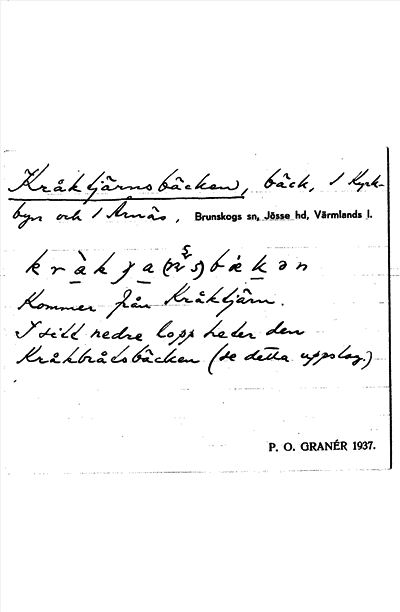 Kråktjärnsbäcken, bäck, / Kyrk-
byn och / Arnäs, Brunskogs sn, Jösse hd, Värmlands l.
Kommer från Kråktjärn.
I sitt nedre lopp heter den
Kråkbråtsbäcken (se detta uppslag.)
P. O. GRANÉR 1937.